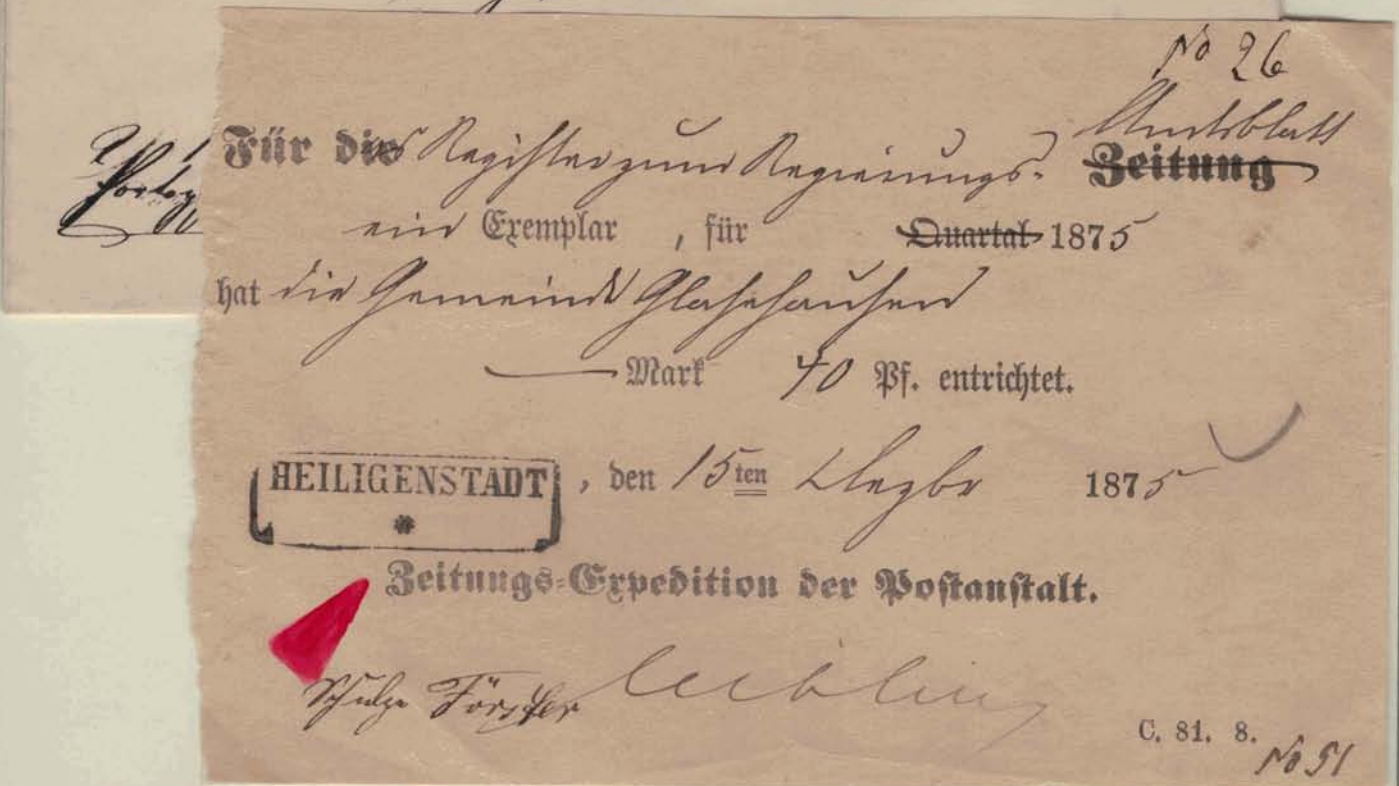 No 26
Für das Register zum Regierungs- Amtsblatt
Zeitung
ein Exemplar , für Quartal 1875
hat die Gemeinde Glasehausen
— Mark 40 Pf. entrichtet.
HEILIGENSTADT , den 15ten Dezbr 1875
Zeitungs-Expedition der Postanstalt.
Schulze Förster
C. 81. 8.
No 51